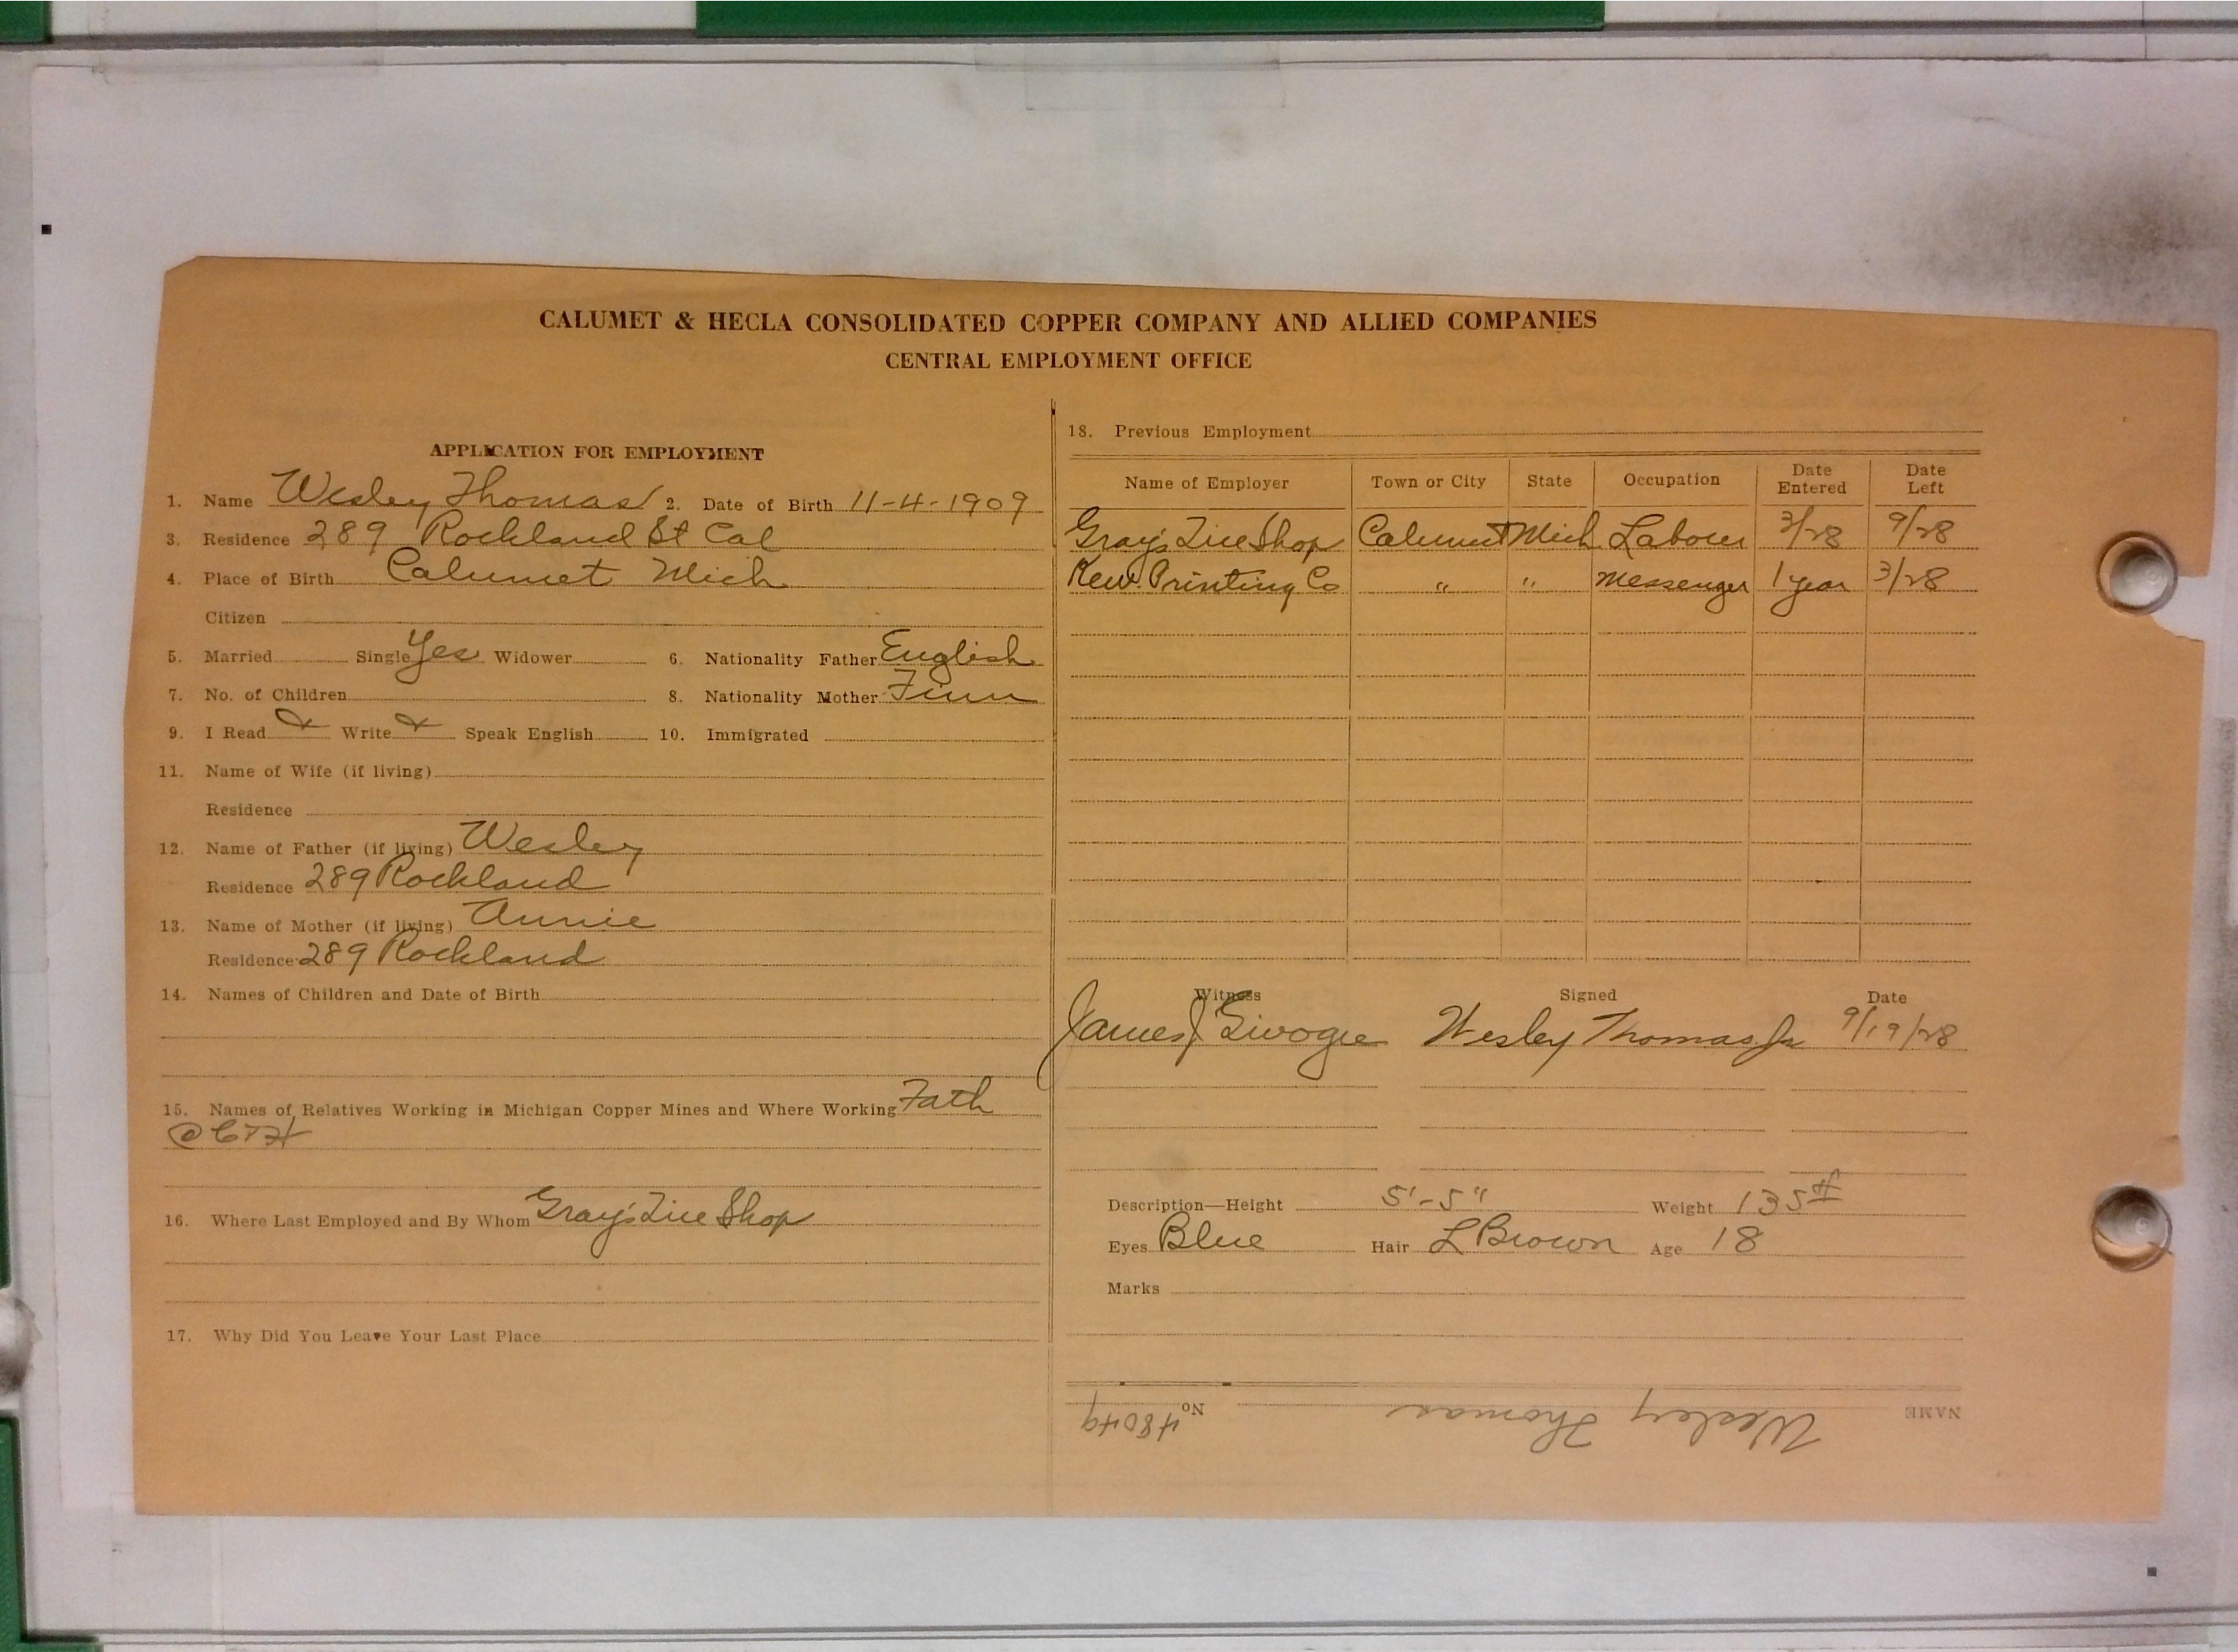 CALUMET & HECLA CONSOLIDATED COPPER COMPANY AND ALLIED COMPANIES
CENTRAL EMPLOYMENT OFFICE
APPLICATION FOR EMPLOYMENT
1. Name Wesley Thomas 2. Date of Birth 11-4-1909
3. Residence 289 Rockland St Cal
4. Place of Birth Calumet Mich
Citizen
5. Married Single Yes Widower 6. Nationality Father English
7. No. of Children 8. Nationality Mother Finn
9. I Read Write Speak English 10. Immigrated
11. Name of Wife (if living)
Residence
12. Name of Father (if living) Wesley
Residence 289 Rockland
13. Name of Mother (if living) Annie
Residence 289 Rockland
14. Names of Children and Date of Birth
15. Names of Relatives Working in Michigan Copper Mines and Where Working Fath
16. Where Last Employed and By Whom Gray's Shop
17. Why Did You Leave Your Last Place
18. Previous Employment
Name of Employer Town or City State Occupation Date Entered Date Left
Gray's Shop Calumet Mich Labour 3/28 9/28
Printing Co " " Messenger 1 year 3/28
Witness Signed Date
James J Wesley Thomas Jr 9/19/28
Description—Height 5'-5" Weight 135#
Eyes Blue Hair L Brown Age 18
Marks
NAME Wesley Thomas No 48049